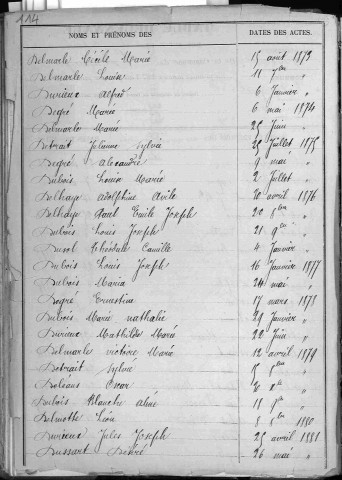 114
NOMS ET PRÉNOMS DES DATES DES ACTES.
Delmarle Cécile Marie 15 août 1873
Delmarle Louise 11 7bre "
Durieux Alfred 6 Janvier "
Degré Marie 6 mai 1874
Delmarle Marie 25 Juin "
Detrait Julienne Sylvie 29 Juillet 1875
Degré Alexandre 9 mai "
Dubois Louise Marie 2 Juillet "
Delhaye Adolphine 20 avril 1876
Delhaye Paul Emile Joseph 20 8bre "
Dubois Louis Joseph 21 9bre "
Camille 4 Janvier
Dubois Louis Joseph 16 Janvier 1877
Dubois Maria 24 mai "
Degré Ernestine 17 mars 1878
Dubois Marie nathalie 29 Janvier "
Durieux Mathilde Marie 22 Juin "
Delmarle victoire Marie 12 avril 1879
Detrait Sylvie 15 "
Oscar "
Dubois Blanche aline 11 7bre "
Delmotte Léon 8 8bre 1880
Durieux Jules Joseph 25 avril 1881
Dussart Désiré 26 mai "